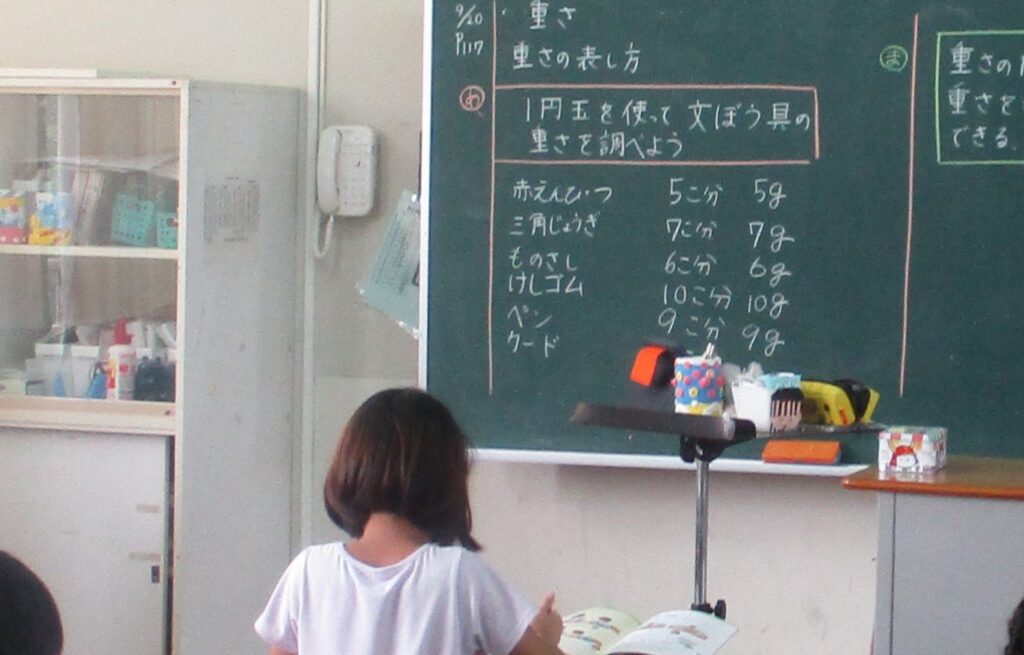 9/20 ・重さ
P117 重さの表し方
め 1円玉を使って文ぼう具の
重さを調べよう
赤えんぴつ 5こ分 5g
三角じょうぎ 7こ分 7g
ものさし 6こ分 6g
けしゴム 10こ分 10g
ペン 9こ分 9g
ま 重さの
重さを
できる。